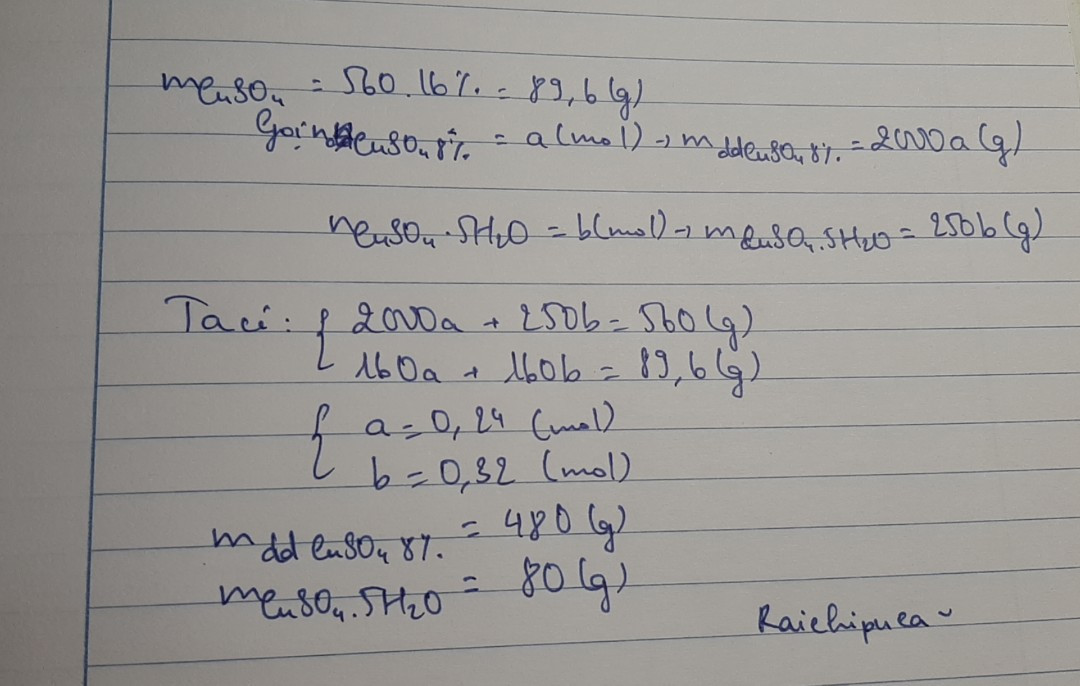 mCuSO₄ = 560.16% = 89,6(g)
Gọi nCuSO₄ 8% = a(mol) → mddCuSO₄ 8% = 2000a(g)
nCuSO₄.5H₂O = b(mol) → mCuSO₄.5H₂O = 250b(g)
Ta có: { 2000a + 250b = 560(g)
160a + 160b = 89,6(g)
{ a = 0,24 (mol)
b = 0,32 (mol)
mdd CuSO₄ 8% = 480(g)
mCuSO₄.5H₂O = 80(g)
Raichipuca~